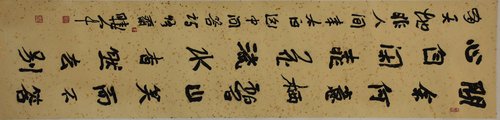 問余何意栖碧山笑而不答
心自閑桃花流水窅然去別
有天地非人間李太白山中問答